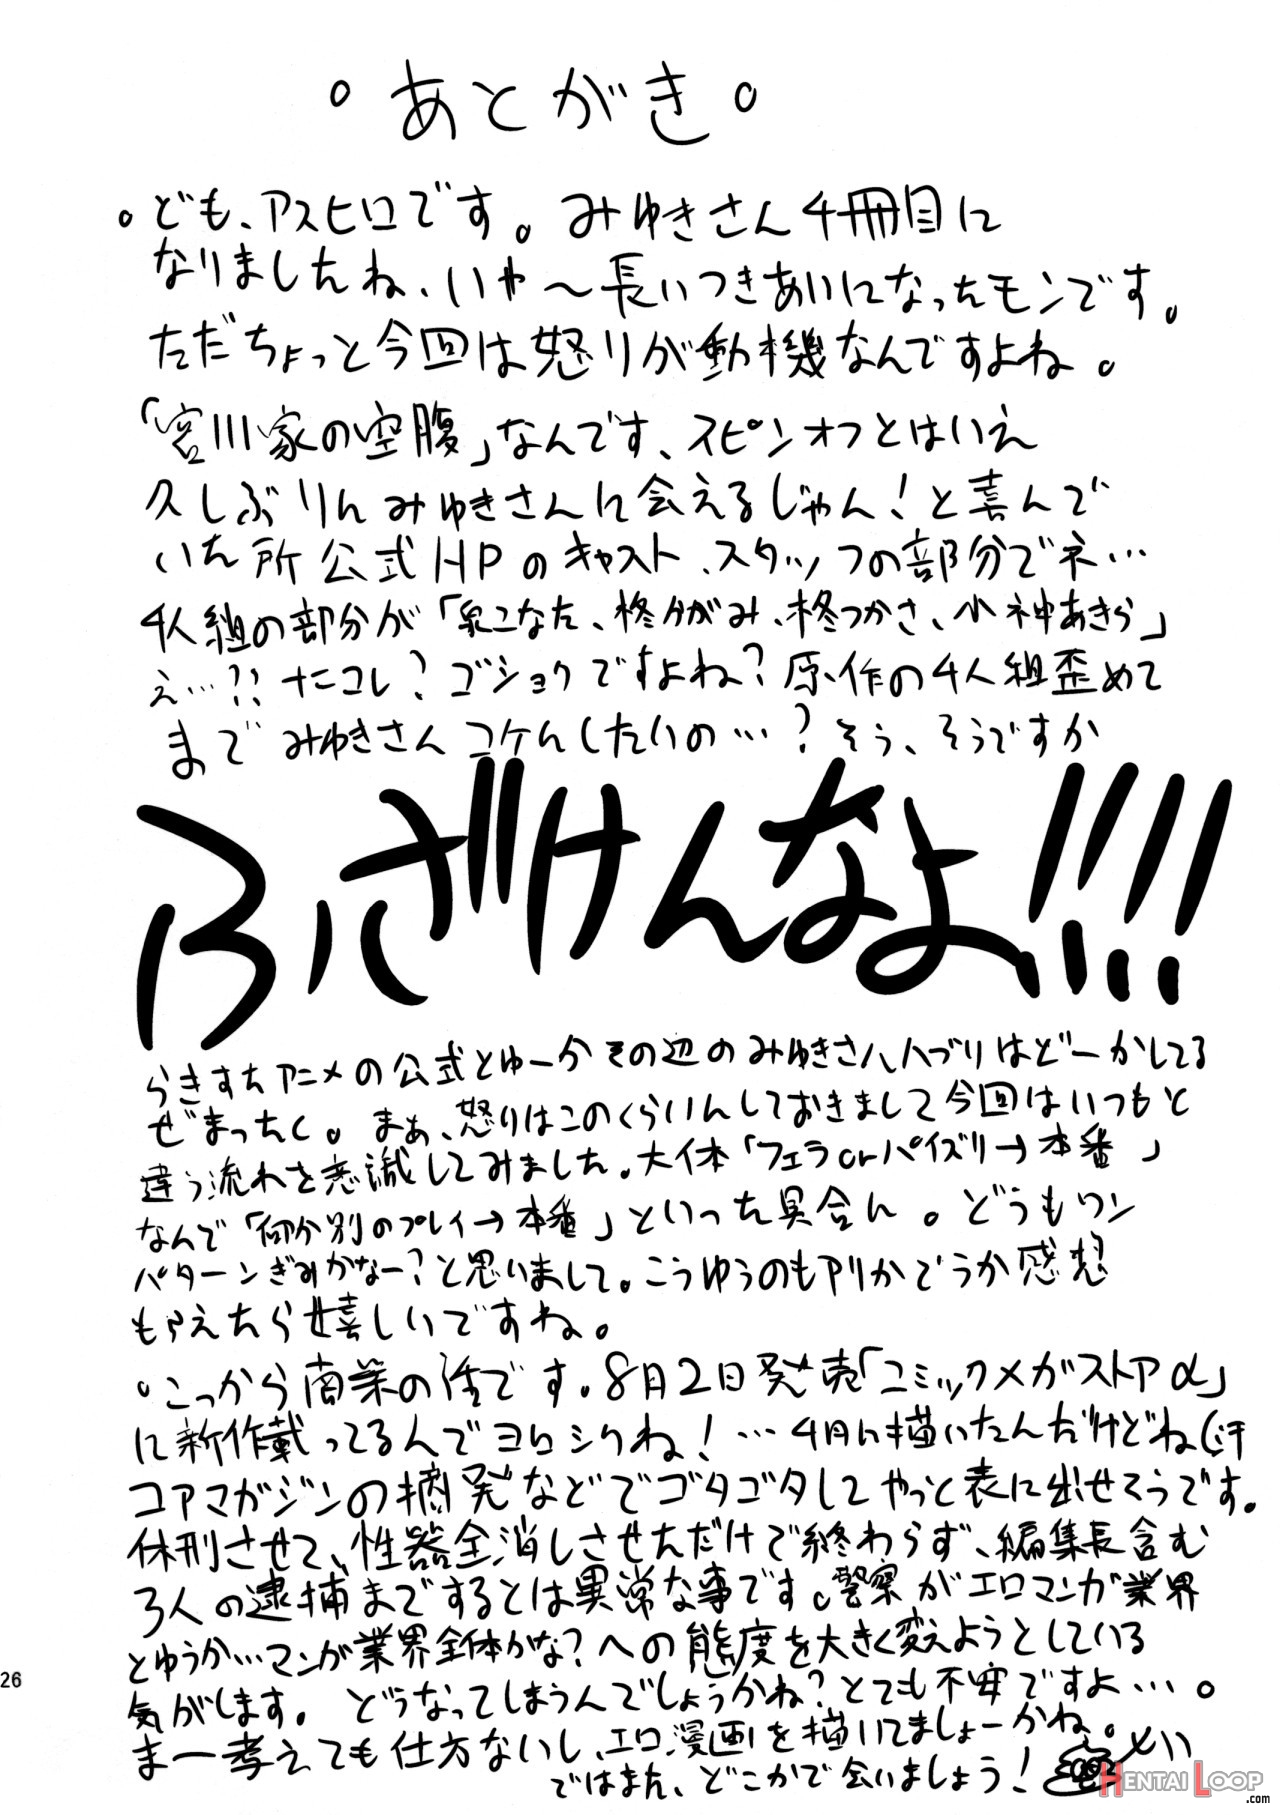 。あとがき。
。ども、アスヒロです。みゆきさん4冊目に
なりましたね、いや〜長いつきあいになったモンです。
ただちょっと今回は怒りが動機なんですよね。
「宮川家の空腹」なんです、スピンオフとはいえ
久しぶりにみゆきさんに会えるじゃん!と喜んで
いた所公式HPのキャスト、スタッフの部分でネ…
4人組の部分が「泉こなた、柊かがみ、柊つかさ、小神あきら」
え…?? ナニコレ? ゴショクですよね? 原作の4人組歪めて
までみゆきさんコケにしたいの…? そう、そうですか
ふざけんなよ!!!!
らきすたアニメの公式とゆーかその辺のみゆきさんハブリはどーかしてる
ぜまったく。まぁ、怒りはこのくらいにしておきまして今回はいつもと
違う流れを意識してみました。大体「フェラorパイズリ→本番」
なんで「何か別のプレイ→本番」といった具合に。どうもワン
パターンぎみかなー?と思いまして。こうゆうのもアリかどうか感想
もらえたら嬉しいですね。
。こっから商業の話です。8月2日発売「コミックメガストアα」
に新作載ってるんでヨロシクね!…4月に描いたんだけどね(汗
コアマガジンの摘発などでゴタゴタしてやっと表に出せそうです。
休刊させて、性器全消しさせただけで終わらず、編集長含む
3人の逮捕までするとは異常な事です。警察がエロマンガ業界
とゆうか…マンガ業界全体かな?への態度を大きく変えようとしている
気がします。どうなってしまうんでしょうかね?とても不安ですよ…。
まー考えても仕方ないし、エロ漫画を描いてましょーかね。
ではまた、どこかで会いましょう!
26
HENTAI LOOP
.com